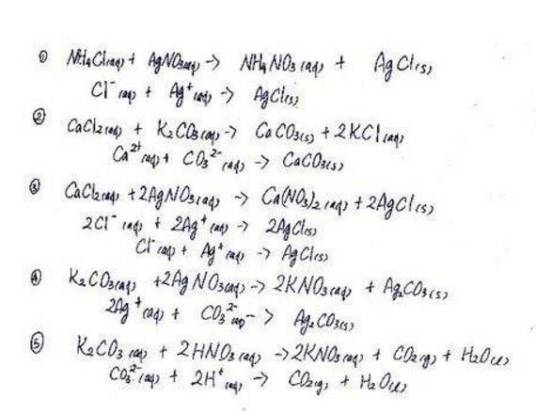 ① NH₄Cl(aq) + AgNO₃(aq) -> NH₄NO₃(aq) + AgCl(s)
Cl⁻(aq) + Ag⁺(aq) -> AgCl(s)
② CaCl₂(aq) + K₂CO₃(aq) -> CaCO₃(s) + 2KCl(aq)
Ca²⁺(aq) + CO₃²⁻(aq) -> CaCO₃(s)
③ CaCl₂(aq) + 2AgNO₃(aq) -> Ca(NO₃)₂(aq) + 2AgCl(s)
2Cl⁻(aq) + 2Ag⁺(aq) -> 2AgCl(s)
Cl⁻(aq) + Ag⁺(aq) -> AgCl(s)
④ K₂CO₃(aq) + 2AgNO₃(aq) -> 2KNO₃(aq) + Ag₂CO₃(s)
2Ag⁺(aq) + CO₃²⁻(aq) -> Ag₂CO₃(s)
⑤ K₂CO₃(aq) + 2HNO₃(aq) -> 2KNO₃(aq) + CO₂(g) + H₂O(l)
CO₃²⁻(aq) + 2H⁺(aq) -> CO₂(g) + H₂O(l)